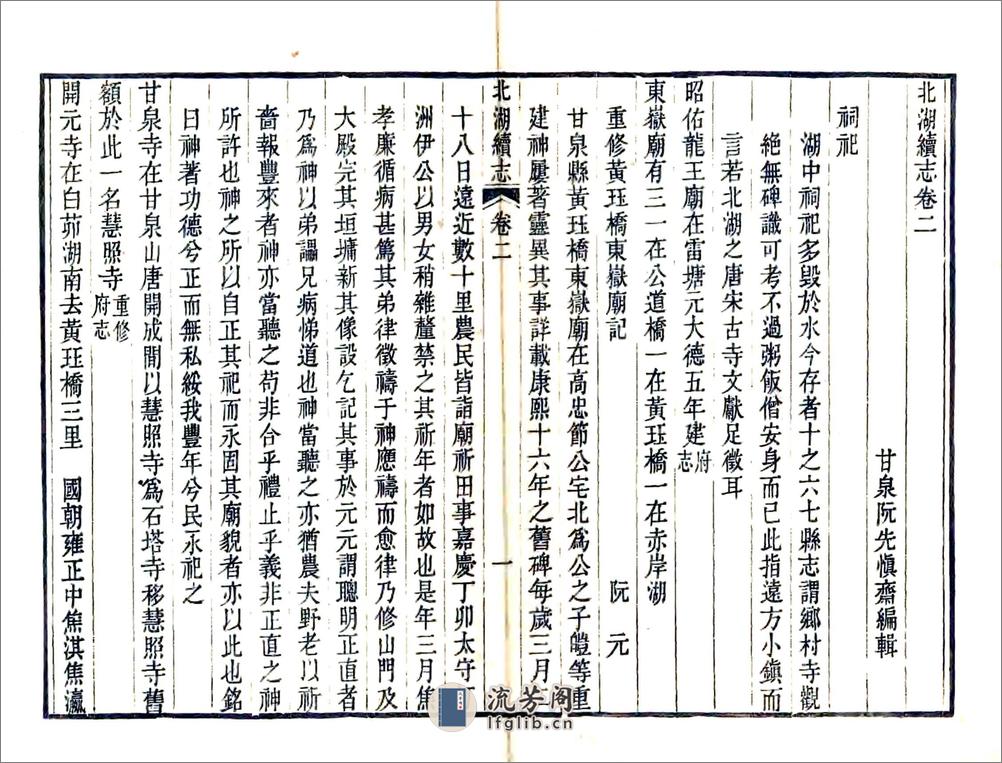 北湖續志卷二
甘泉阮先愼齋編輯
祠祀
湖中祠祀多毀於水今存者十之六七縣志謂鄉村寺觀
絶無碑識可考不過粥飯僧安身而已此指遠方小鎮而
言若北湖之唐宋古寺文獻足徵耳
昭佑龍王廟在雷塘元大德五年建府志
東嶽廟有三一在公道橋一在黃珏橋一在赤岸湖
重修黃珏橋東嶽廟記
阮元
甘泉縣黃珏橋東嶽廟在高忠節公宅北爲公之子皚等重
建神屢著靈異其事詳載康熙十六年之舊碑每歲三月二
北湖續志
卷二
一
十八日遠近數十里農民皆詣廟祈田事嘉慶丁卯太守
洲伊公以男女稍雜釐禁之其祈年者如故也是年三月焦
孝廉循病甚篤其弟律徵禱于神應禱而愈律乃修山門及
大殿完其垣墉新其像設乞記其事於元元謂聰明正直者
乃爲神以弟謳兄病悌道也神當聽之亦猶農夫野老以祈
嗇報豐來者神亦當聽之苟非合乎禮止乎義非正直之神
所許也神之所以自正其祀而永固其廟貌者亦以此也銘
曰神著功德兮正而無私綏我豐年兮民永祀之
甘泉寺在甘泉山唐開成閒以慧照寺爲石塔寺移慧照寺舊
額於此一名慧照寺重修府志
開元寺在白茆湖南去黃珏橋三里 國朝雍正中焦淇焦瀛
流芳阁
lfglib.cn